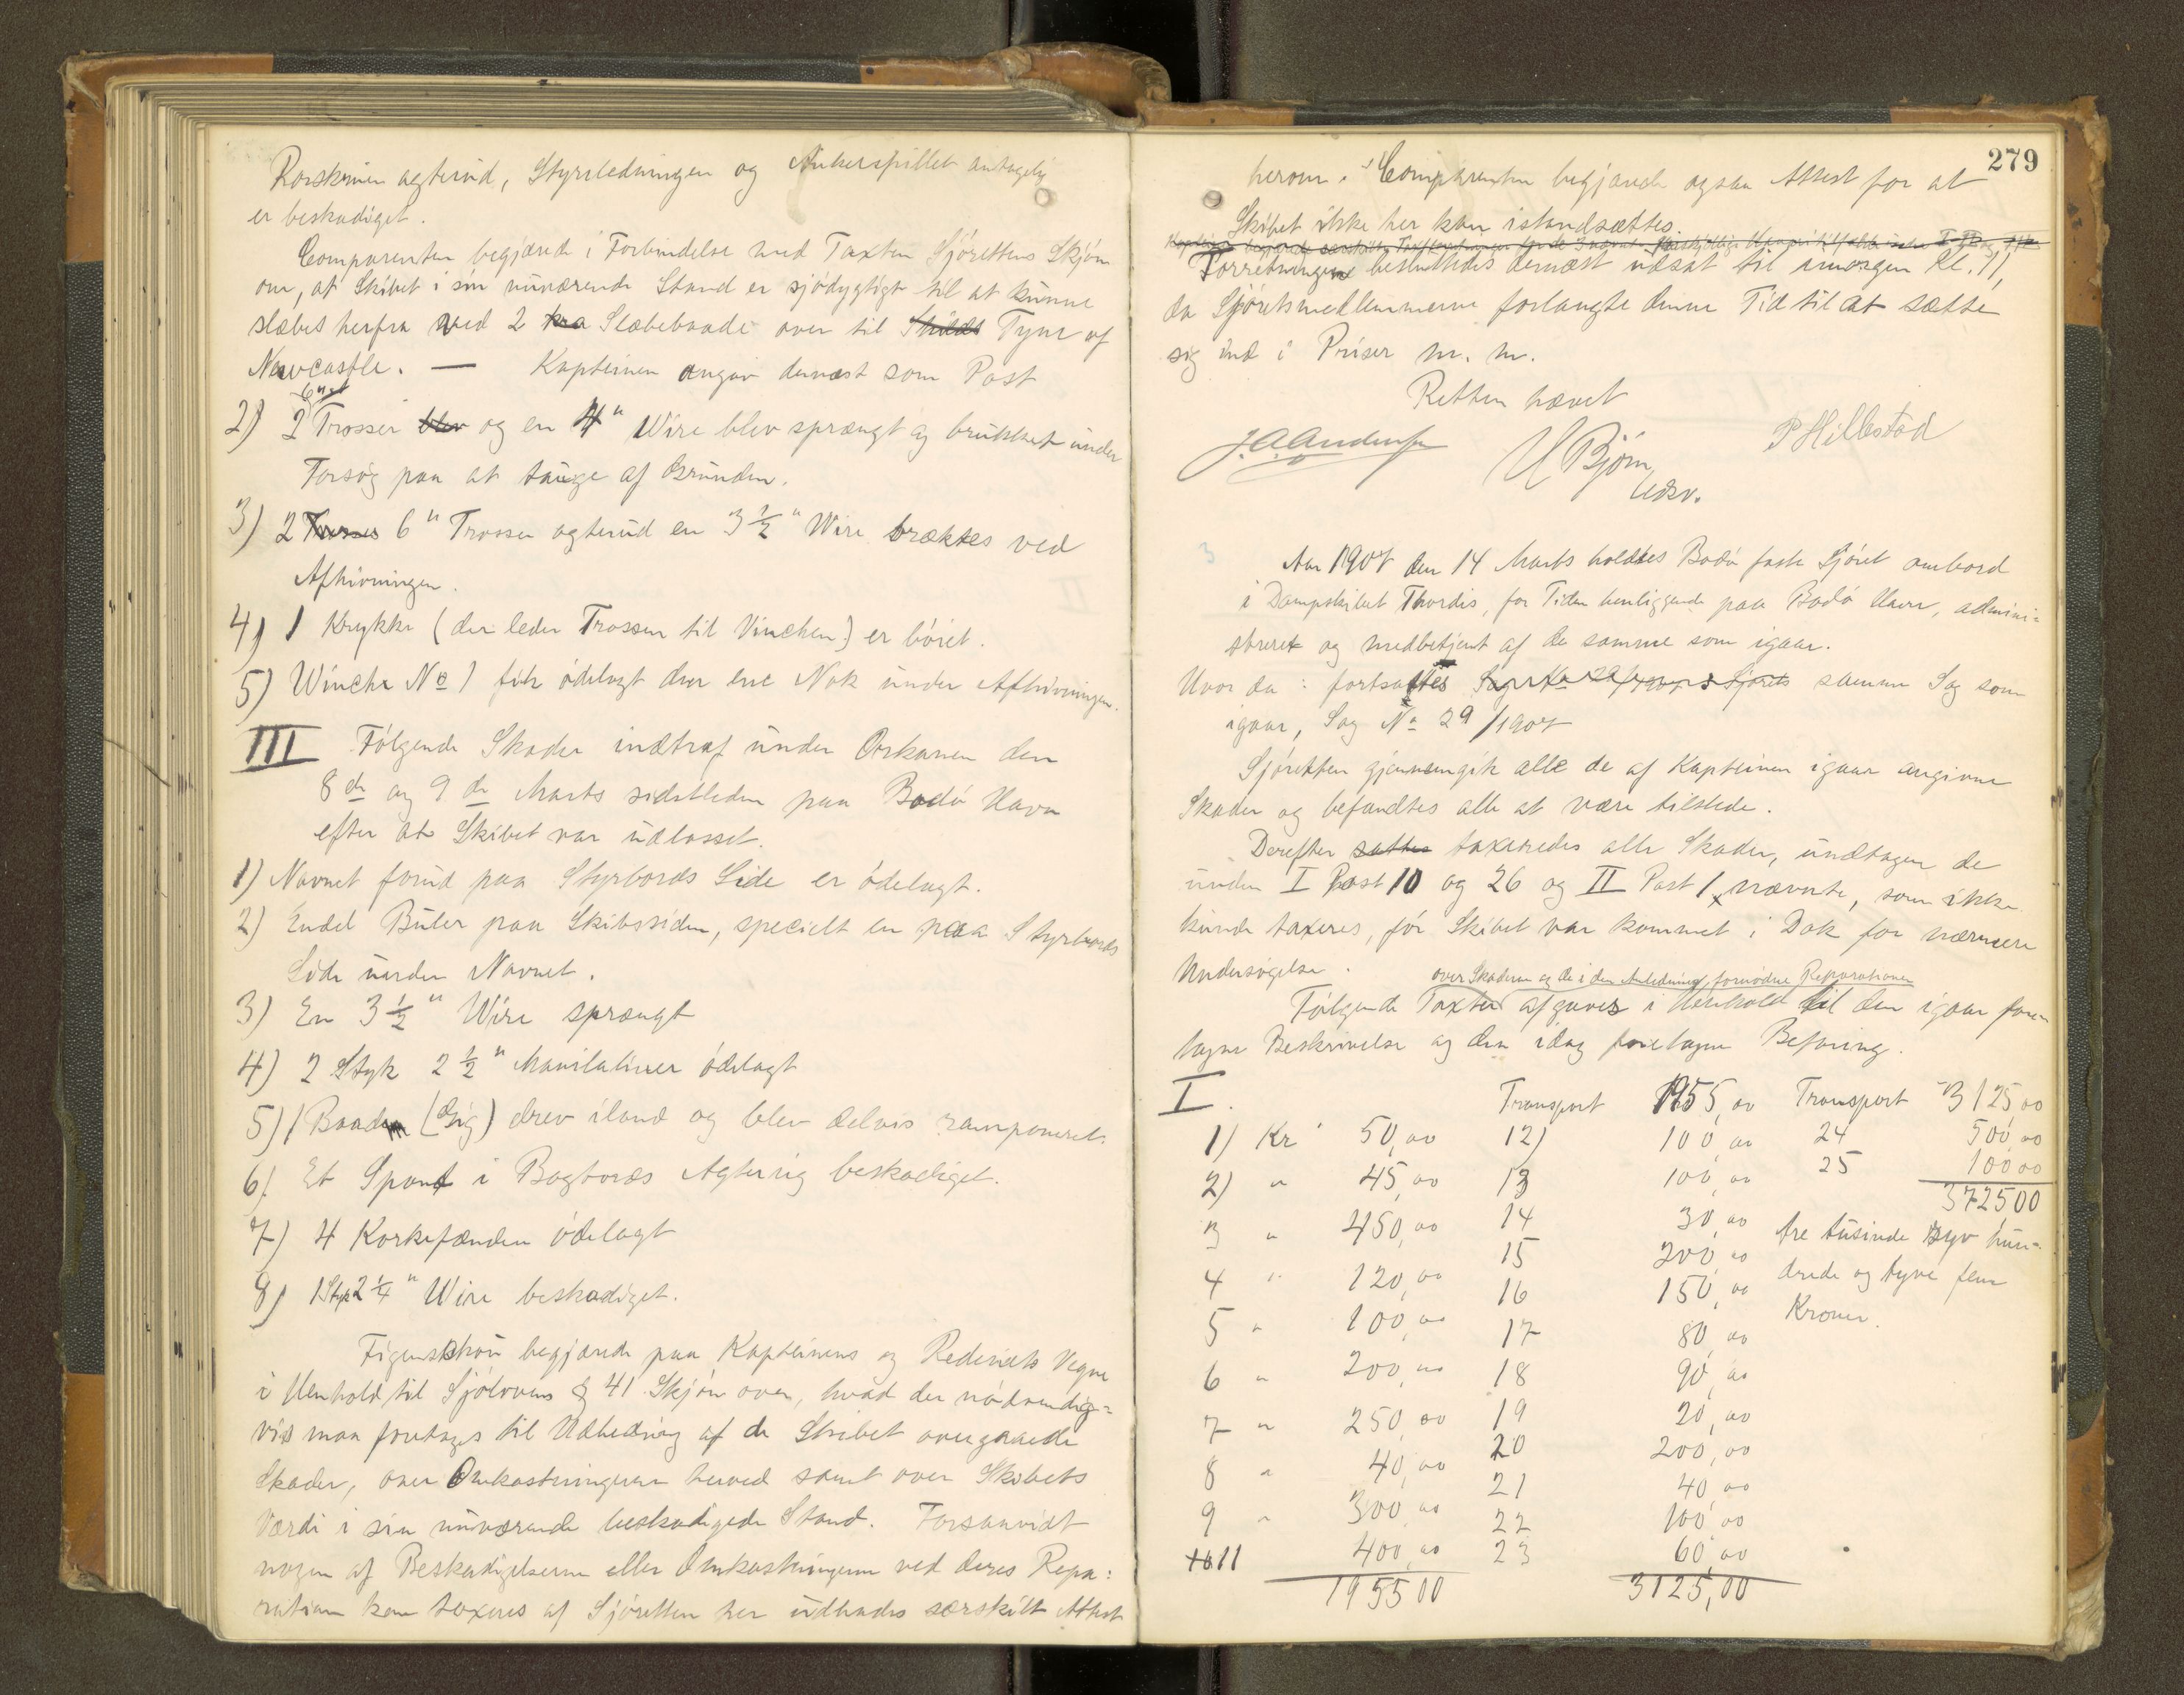 Rorskruen agterud, Styrsledningen og Ankerspillet antagelig
er beskadiget.
Comparenten begjærede i Forbindelse med Taxten Sjörettens Skjön
om, at Skibet i sin nuværende Stand er sjödygtigt til at kunne
slæbes herfra ved 2 Slæbebaade over til Tyne of
Newcastle. — Kapteinen angav dernæst som Post
2) 2 6" Trosser blev og en 4" Wire blev sprængt og brukket under
Forsög paa at tauge af Grunden.
3) 2 Trosser 6" Trosser agterud en 3½" Wire brækkes ved
Afhivningen.
4) 1 Krykke (der leder Trossen til Vinchen) er böiet.
5) Winche No 1 fik ödelagt den ene Nok under Afhivningen.
III Fölgende Skader indtraf under Orkanen den
8de og 9de Marts sidstleden paa Bodö Havn
efter at Skibet var udlosset.
1) Navnet forud paa Styrbords Side er ödelagt.
2) Endel Buler paa Skibssiden, specielt en paa Styrbords
Side under Navnet.
3) En 3½" Wire sprængt
4) 2 Styk 2½" Manilaliner ödelagt
5) 1 Baad (Gig) drev iland og blev delvis ramponeret.
6) Et Spant i Bagbords Agterrig beskadiget.
7) 4 Korkefændere ödelagt
8) 1 Styk 2¼" Wire beskadiget.
begjærede paa Kapteinens og Rederiets Vegne
i Henhold til Sjölovens § 41 Skjön over, hvad der nödvendig=
vis maa foretages til Udbedring af de Skibet overgaaede
Skader, over Omkostningerne herved samt over Skibets
Værdi i sin nuværende beskadigede Stand. Forsaavidt
nogen af Beskadigelserne eller Omkostningerne ved deres Repa=
ration kan taxeres af Sjöretten her udbades særskilt Attest
279
herom. Comparenten begjærede ogsaa Attest for at
Skibet ikke her kan istandsættes.
Forretningen besluttedes dernæst udsat til imorgen Kl. 11,
da Sjöretsmedlemmerne forlangte denne Tid til at sætte
sig ind i Priser m. m.
Retten hævet
J. A. Andersen H Bjørn P Hillestad
udsv.
3
Aar 1907 den 14 Marts holdtes Bodö faste Sjöret ombord
i Dampskibet Thordis, for Tiden henliggende paa Bodö Havn, admini=
streret og medbetjent af de samme som igaar.
Hvor da: fortsattes samme Sag som
igaar, Sag No 29/1907
Sjöretten gjennemgik alle de af Kapteinen igaar angivne
Skader og befandtes alle at være tilstede.
Derefter sattes taxeredes alle Skader, undtagen de
under I Post 10 og 26 og II Post 1 nævnte, som ikke
kunde taxeres, för Skibet var kommet i Dok for nærmere
Undersögelse.
over Skaderne og de i den Anledning fornödne Reparationer
Fölgende Taxter afgaves i Henhold til den igaar fore-
tagne Beskrivelse og den idag foretagne Befaring.
I. Transport 1955,00 Transport 312500
1) Kr 50,00 12) 100,00 24 500,00
2) " 45,00 13 100,00 25 10000
372500
3 " 450,00 14 30,00 tre tusinde syv hun=
4 " 120,00 15 200,00 drede og tyve fem
5 " 100,00 16 150,00 Kroner.
6 " 200,00 17 80,00
7 " 250,00 18 90,00
8 " 40,00 19 20,00
9 " 300,00 20 200,00
11 400,00 21 40,00
22 100,00
23 60,00
195500 3125,00